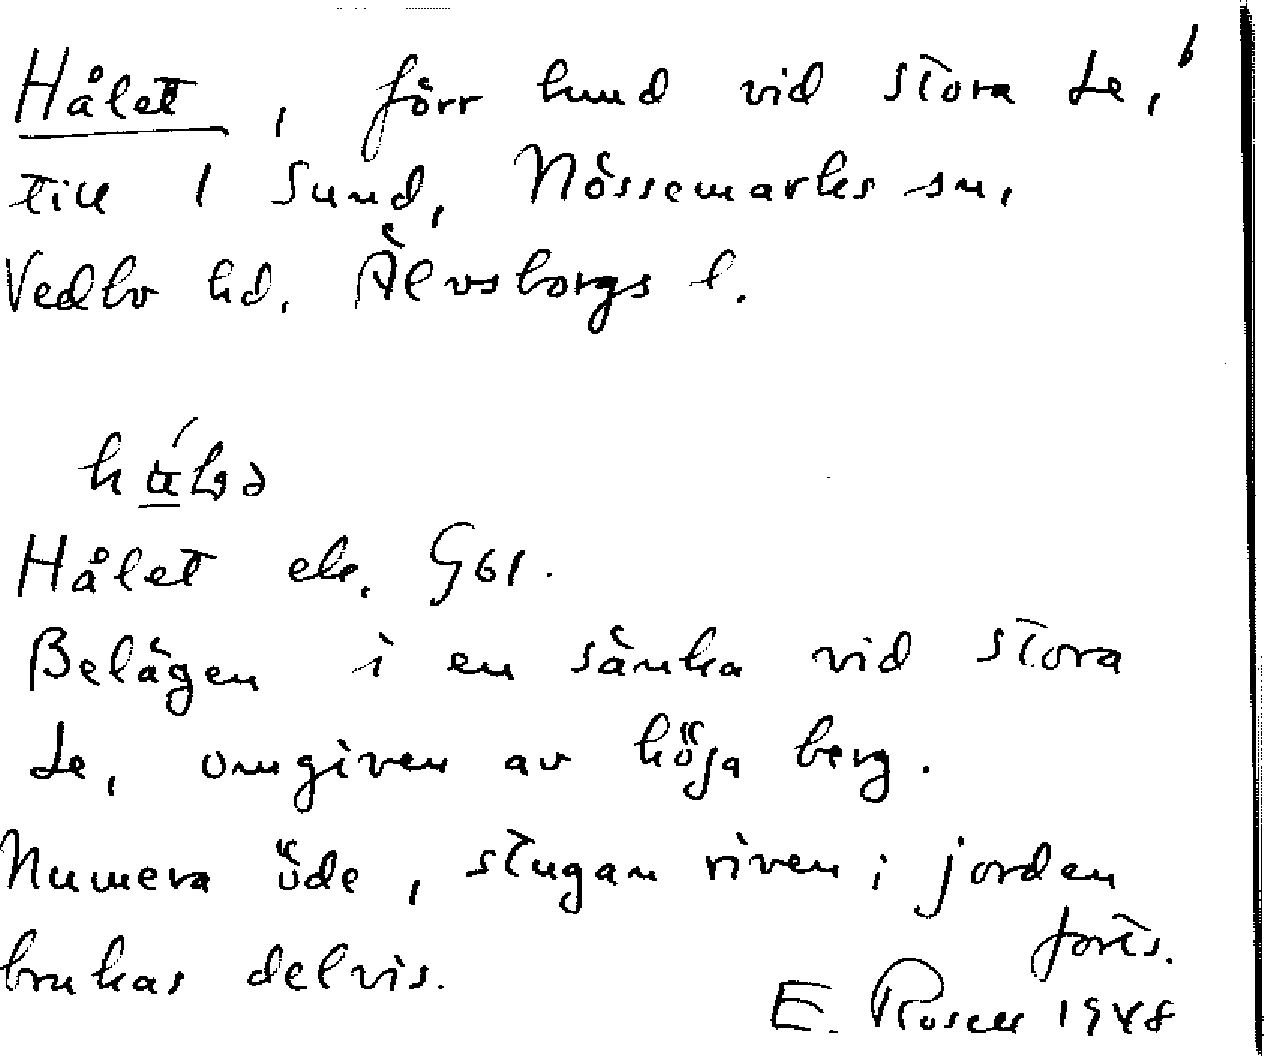 Hålet, förr lund vid Stora Le, b
till 1 Sund, Nössemarks sn,
Vedbo hd. Älvsborgs l.
Hålet ek. G61.
Belägen i en sänka vid Stora
Le, omgiven av höga berg.
Numera öde, stugan riven; jorden
brukas delvis. forts.
E. Rosell 1948